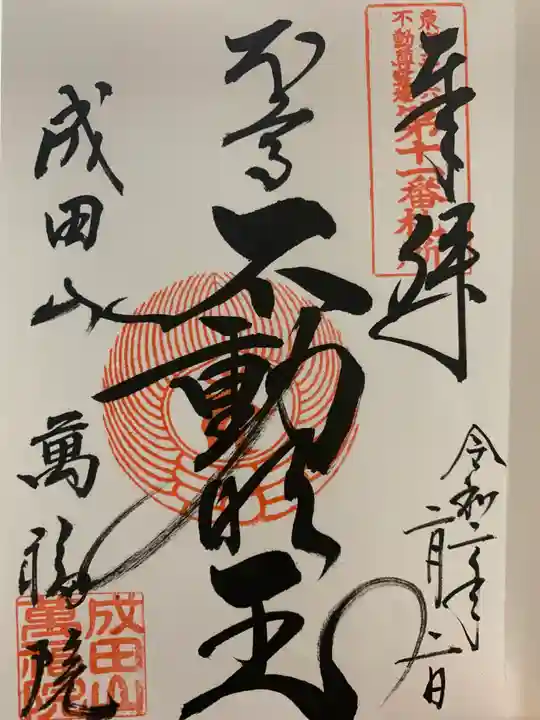 奉拝
不動尊霊場
第十一番札所
令和二年
二月二日
本尊
不動明王
成田山
萬福院
成田山
萬福院